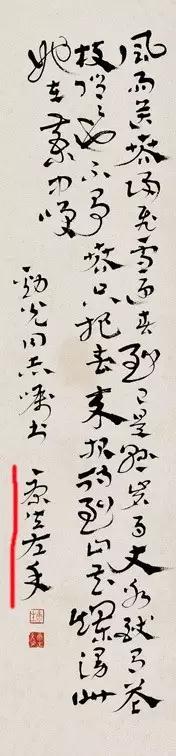 風雨送春歸飛雪迎春到已是懸崖百丈冰猶有花
枝俏々也不爭春只把春來報待到山花爛漫時
她在叢中笑
勁光同志囑書 康生左手